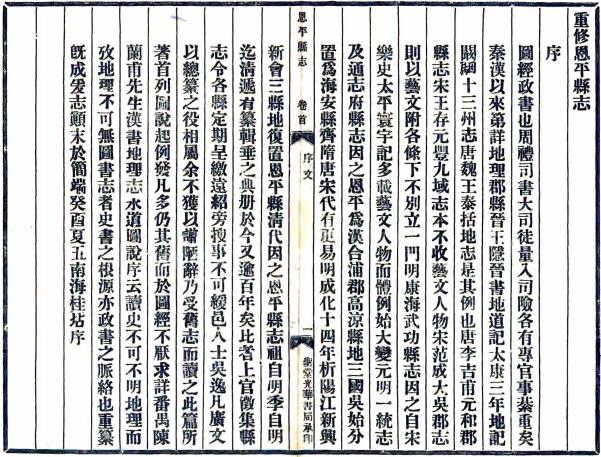 重修恩平縣志
序
圖經政書也周禮司書大司徒量入司險各有專官事綦重矣
秦漢以來第詳地理郡縣晉王隱晉書地道記太康三年地記
闞駰十三州志唐魏王泰括地志是其例也唐李吉甫元和郡
縣志宋王存元豐九域志本不收藝文人物宋范成大吳郡志
則以藝文附各條下不別立一門明康海武功縣志因之自宋
樂史太平寰宇記多載藝文人物而體例始大變元明一統志
及通志府縣志因之恩平爲漢合浦郡高涼縣地三國吳始分
置爲海安縣齊隋唐宋代有更易明成化十四年析陽江新興
恩平縣志
卷首
序文
一
聖堂光華書局承印
新會三縣地復置恩平縣清代因之恩平縣志祖自明季自明
迄清遞有纂輯垂之典册於今又逾百年矣比者上官徵集縣
志令各縣定期呈繳遠紹旁搜事不可緩邑人士吳逸凡廣文
以總纂之役相屬余不獲以謭陋辭乃受舊志而讀之此篇所
著首列圖說起例發凡多仍其舊而於圖經不厭求詳番禺陳
蘭甫先生漢書地理志水道圖說序云讀史不可不明地理而
攷地理不可無圖書志者史書之根源亦政書之脈絡也重纂
旣成爰志顚末於簡端癸酉夏五南海桂坫序